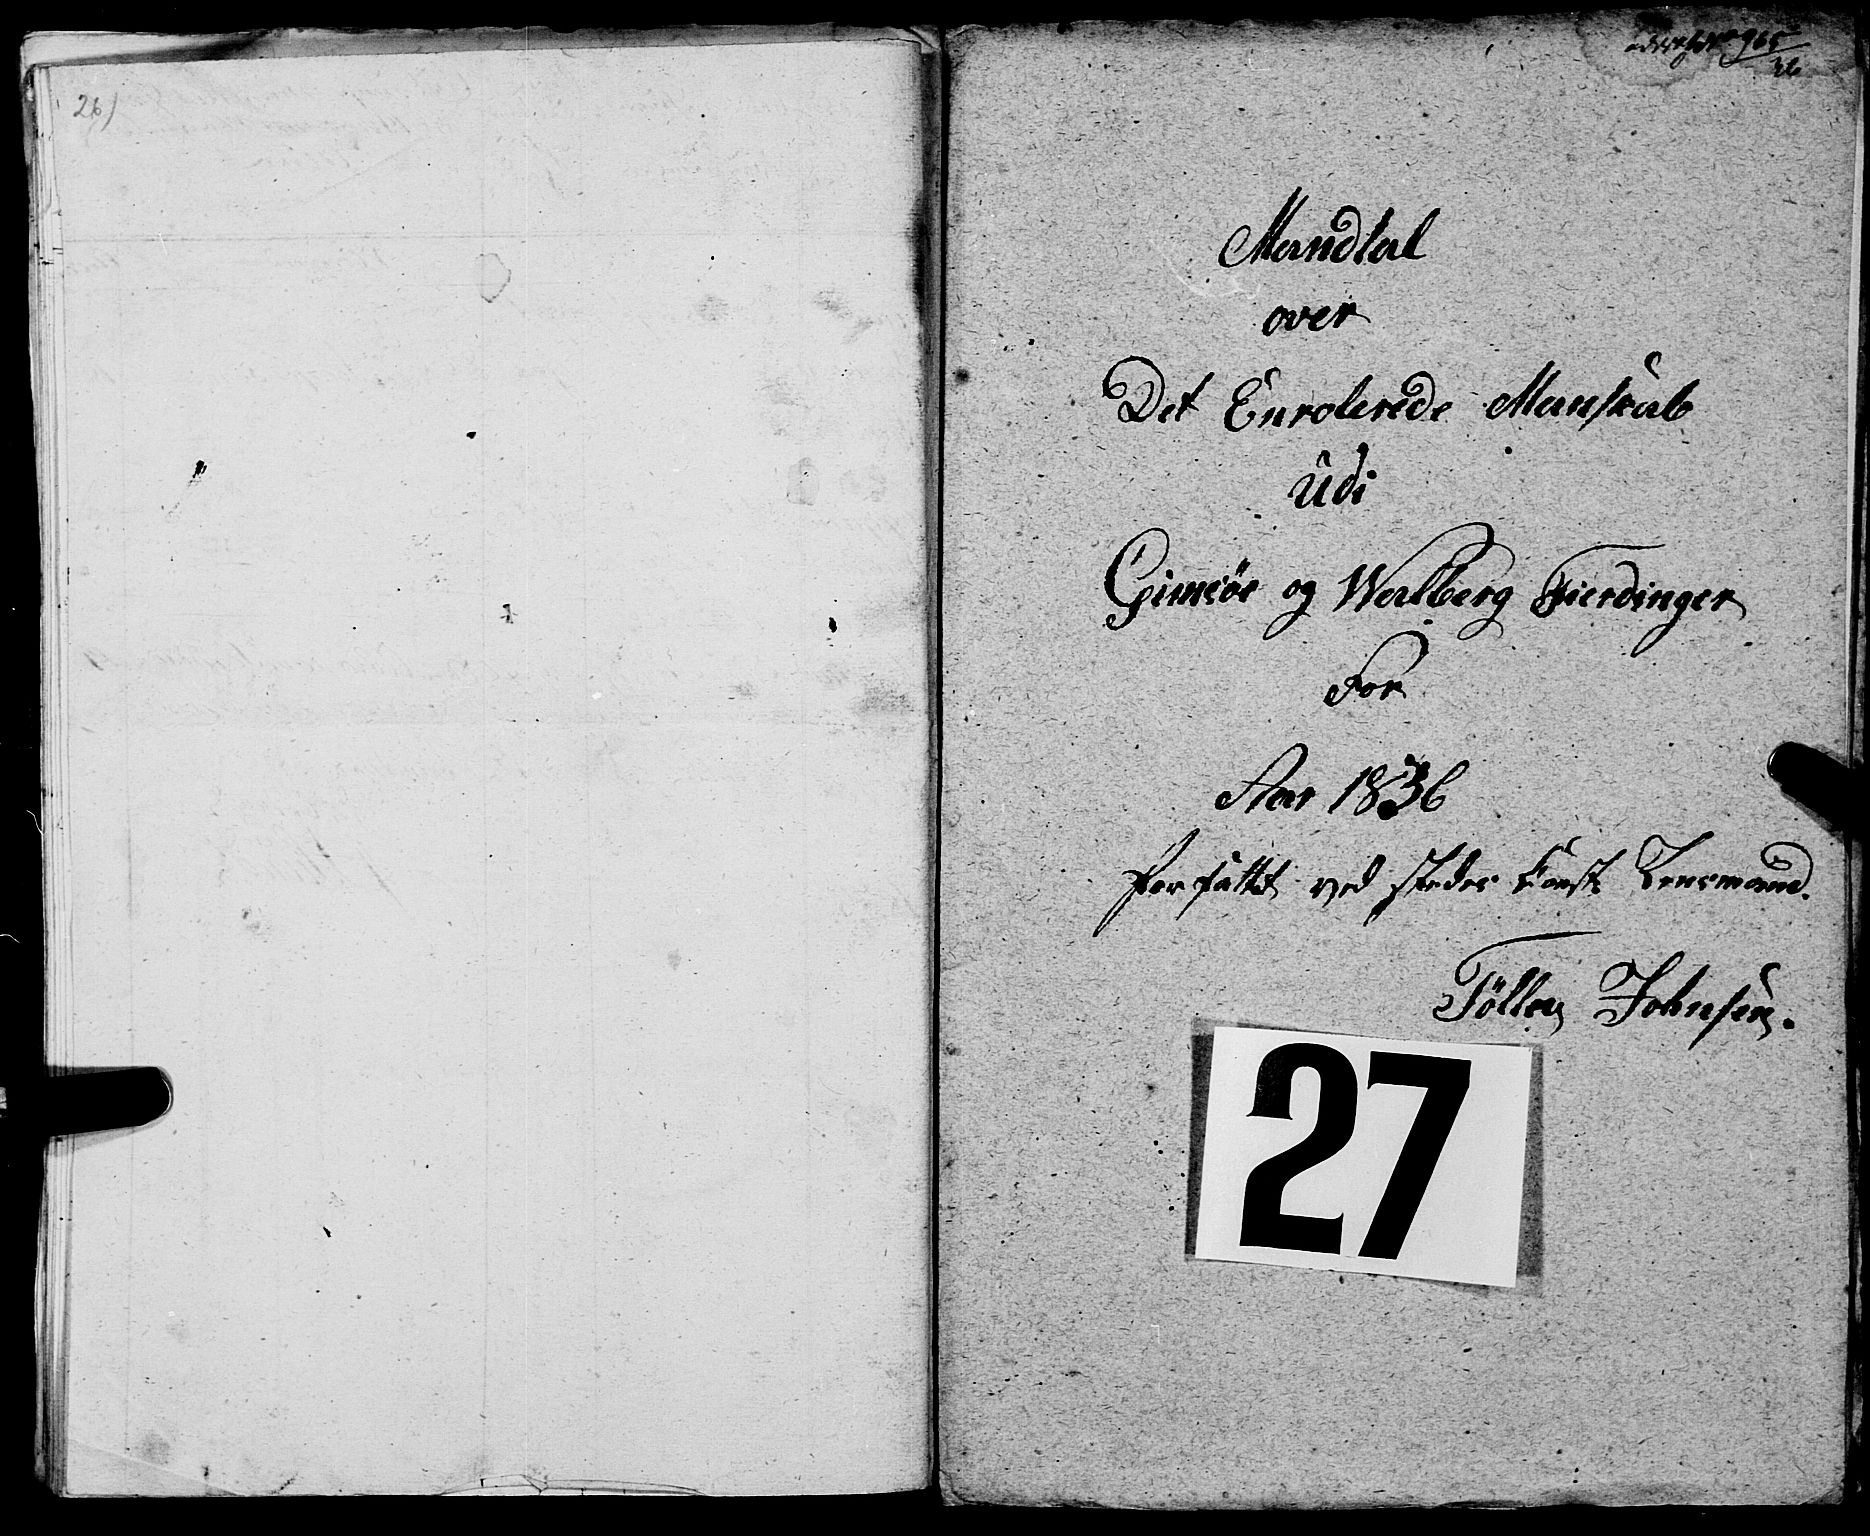 26)
965
36
Mandtal
over
Det Enrolerede Manskab
Udi
Gimsöe og Walberg Fierdinger
For
Aar 1836
forfattet ved stedes Const. Lensmand.
Töllev Johnsen.
27